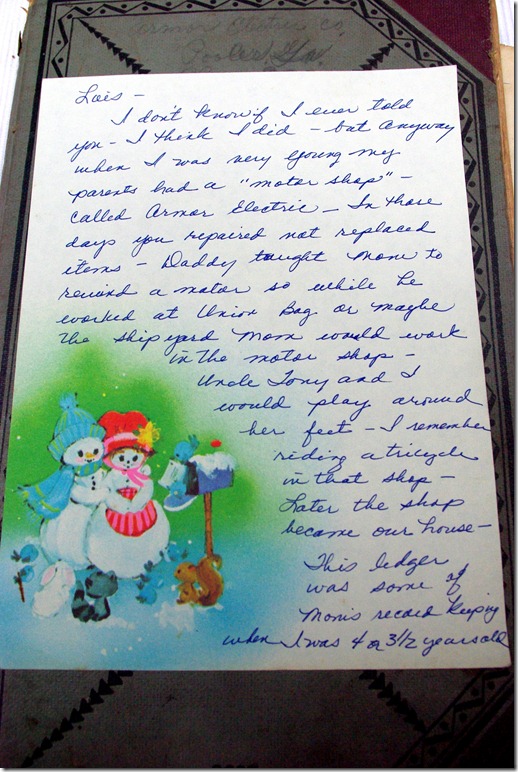 Armor Electric Co.
Pooler Ga.
Lois –
I don't know if I ever told
you – I think I did – but anyway
when I was very young my
parents had a "motor shop" –
called Armor Electric – In those
days you repaired not replaced
items – Daddy taught Mom to
rewind a motor so while he
worked at Union Bag or maybe
the ship yard Mom would work
in the motor shop –
Uncle Tony and I
would play around
her feet – I remember
riding a tricycle
in that shop –
Later the shop
became our house –
This ledger
was some of
Mom's record keeping
when I was 4 or 3 1/2 years old